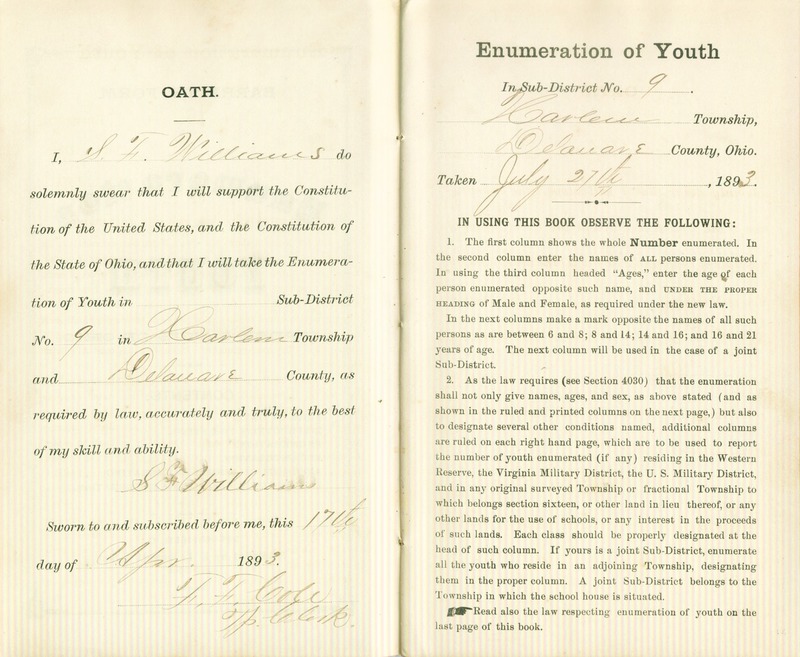 OATH.
I, S. F. Williams do
solemnly swear that I will support the Constitu-
tion of the United States, and the Constitution of
the State of Ohio, and that I will take the Enumera-
tion of Youth in Sub-District
No. 9 in Harlem Township
and Delaware County, as
required by law, accurately and truly, to the best
of my skill and ability.
S F Williams
Sworn to and subscribed before me, this 17th
day of Apr. 1893.
T. F. Cole
Tp. Clerk.
Enumeration of Youth
In Sub-District No. 9.
Harlem Township,
Delaware County, Ohio.
Taken July 27th, 1893.
IN USING THIS BOOK OBSERVE THE FOLLOWING:
1. The first column shows the whole Number enumerated. In
the second column enter the names of ALL persons enumerated.
In using the third column headed "Ages," enter the age of each
person enumerated opposite such name, and UNDER THE PROPER
HEADING of Male and Female, as required under the new law.
In the next columns make a mark opposite the names of all such
persons as are between 6 and 8; 8 and 14; 14 and 16; and 16 and 21
years of age. The next column will be used in the case of a joint
Sub-District.
2. As the law requires (see Section 4030) that the enumeration
shall not only give names, ages, and sex, as above stated (and as
shown in the ruled and printed columns on the next page,) but also
to designate several other conditions named, additional columns
are ruled on each right hand page, which are to be used to report
the number of youth enumerated (if any) residing in the Western
Reserve, the Virginia Military District, the U. S. Military District,
and in any original surveyed Township or fractional Township to
which belongs section sixteen, or other land in lieu thereof, or any
other lands for the use of schools, or any interest in the proceeds
of such lands. Each class should be properly designated at the
head of such column. If yours is a joint Sub-District, enumerate
all the youth who reside in an adjoining Township, designating
them in the proper column. A joint Sub-District belongs to the
Township in which the school house is situated.
Read also the law respecting enumeration of youth on the
last page of this book.